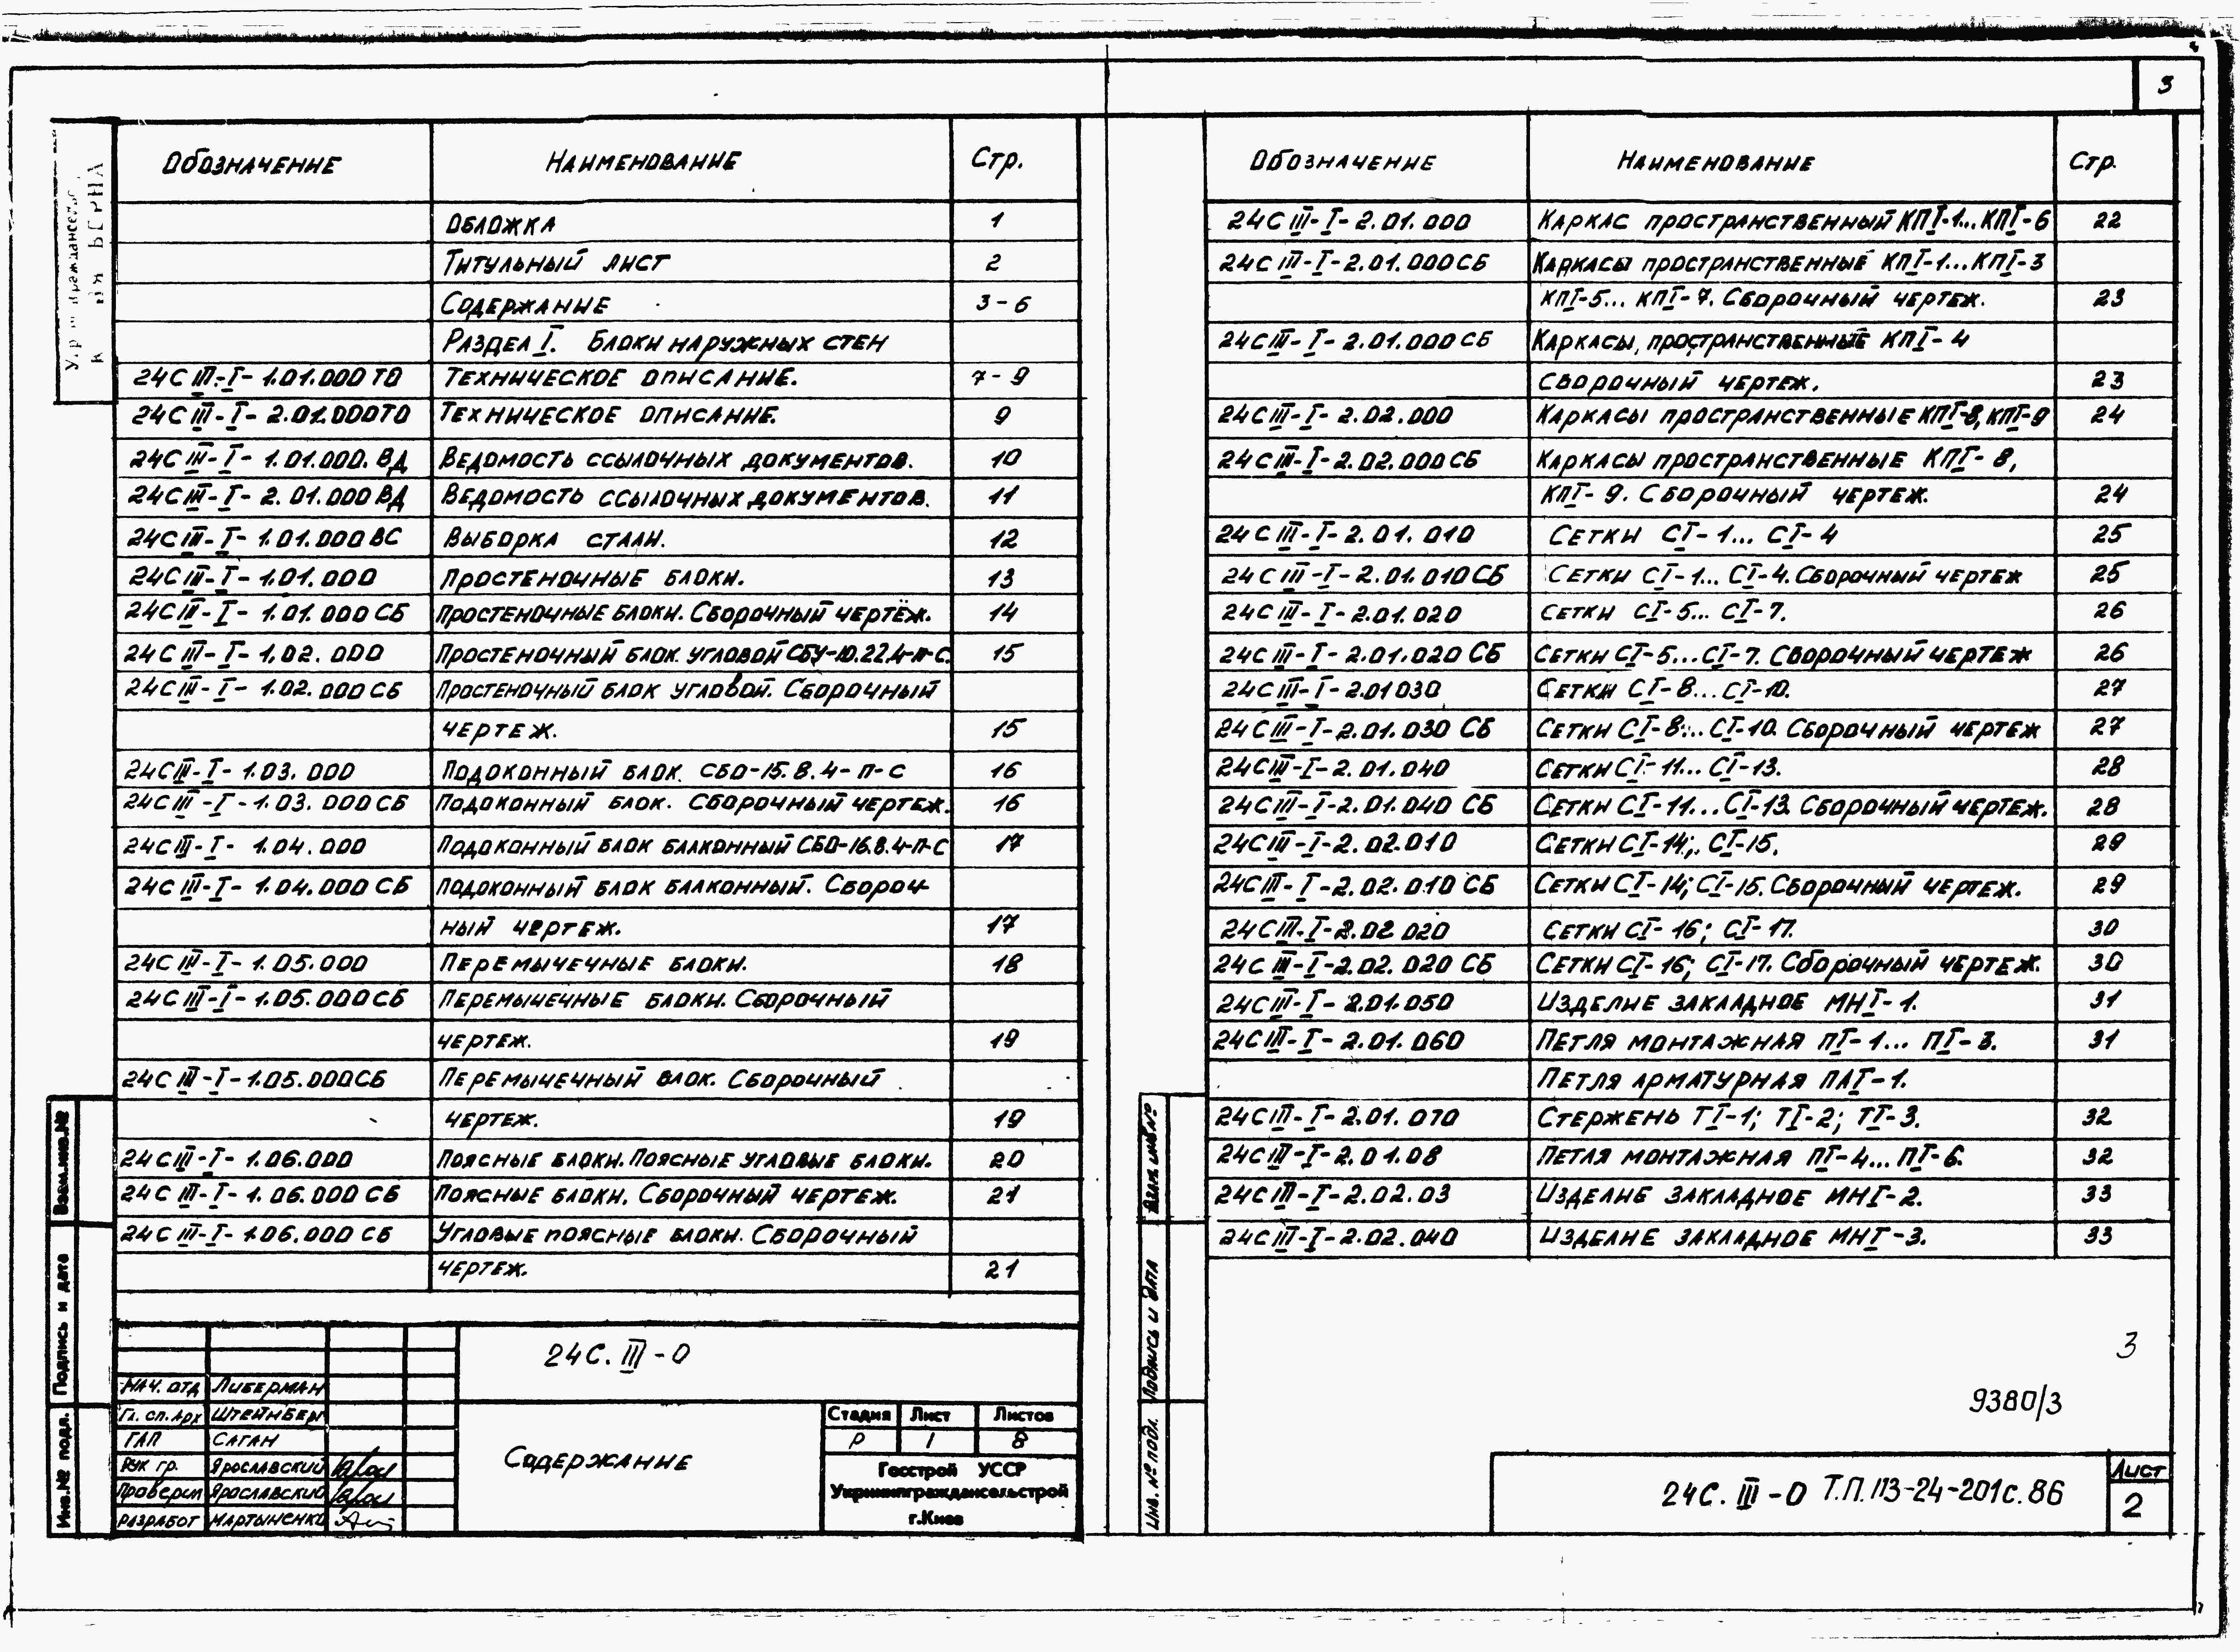 3
Обозначение Наименование Стр.
Обложка 1
Титульный лист 2
Содержание 3-6
Раздел I. Блоки наружных стен
24С III-I-1.01.000ТО Техническое описание. 7-9
24С III-I-2.01.000ТО Техническое описание. 9
24С III-I-1.01.000.ВД Ведомость ссылочных документов. 10
24С III-I-2.01.000ВД Ведомость ссылочных документов. 11
24С III-I-1.01.000ВС Выборка стали. 12
24С III-I-1.01.000 Простеночные блоки. 13
24С III-I-1.01.000СБ Простеночные блоки. Сборочный чертёж. 14
24С III-I-1.02.000 Простеночный блок угловой СБУ-10.22.4-П-С. 15
24С III-I-1.02.000СБ Простеночный блок угловой. Сборочный
чертеж. 15
24С III-I-1.03.000 Подоконный блок СБО-15.8.4-П-С 16
24С III-I-1.03.000СБ Подоконный блок. Сборочный чертеж. 16
24С III-I-1.04.000 Подоконный блок балконный СБО-16.8.4-П-С 17
24С III-I-1.04.000СБ Подоконный блок балконный. Сбороч-
ный чертеж. 17
24С III-I-1.05.000 Перемычечные блоки. 18
24С III-I-1.05.000СБ Перемычечные блоки. Сборочный
чертеж. 19
24С III-I-1.05.000СБ Перемычечный блок. Сборочный
чертеж. 19
24С III-I-1.06.000 Поясные блоки. Поясные угловые блоки. 20
24С III-I-1.06.000СБ Поясные блоки. Сборочный чертеж. 21
24С III-I-1.06.000СБ Угловые поясные блоки. Сборочный
чертеж. 21
Обозначение Наименование Стр.
24С III-I-2.01.000 Каркас пространственный КПI-1...КПI-6 22
24С III-I-2.01.000СБ Каркасы пространственные КПI-1...КПI-3
КПI-5...КПI-7. Сборочный чертеж. 23
24С III-I-2.01.000СБ Каркасы, пространственные КПI-4
сборочный чертеж. 23
24С III-I-2.02.000 Каркасы пространственные КПI-8, КПI-9 24
24С III-I-2.02.000СБ Каркасы пространственные КПI-8,
КПI-9. Сборочный чертеж. 24
24С III-I-2.01.010 Сетки СI-1...СI-4 25
24С III-I-2.01.010СБ Сетки СI-1...СI-4. Сборочный чертеж 25
24С III-I-2.01.020 Сетки СI-5...СI-7. 26
24С III-I-2.01.020СБ Сетки СI-5...СI-7. Сборочный чертеж 26
24С III-I-2.01030 Сетки СI-8...СI-10. 27
24С III-I-2.01.030СБ Сетки СI-8...СI-10. Сборочный чертеж 27
24С III-I-2.01.040 Сетки СI-11...СI-13. 28
24С III-I-2.01.040СБ Сетки СI-11...СI-13. Сборочный чертеж. 28
24С III-I-2.02.010 Сетки СI-14; СI-15. 29
24С III-I-2.02.010СБ Сетки СI-14; СI-15. Сборочный чертеж. 29
24С III-I-2.02.020 Сетки СI-16; СI-17. 30
24С III-I-2.02.020СБ Сетки СI-16; СI-17. Сборочный чертеж. 30
24С III-I-2.01.050 Изделие закладное МНI-1. 31
24С III-I-2.01.060 Петля монтажная ПI-1...ПI-3. 31
Петля арматурная ПАI-1.
24С III-I-2.01.070 Стержень ТI-1; ТI-2; ТI-3. 32
24С III-I-2.01.08 Петля монтажная ПI-4...ПI-6. 32
24С III-I-2.02.03 Изделие закладное МНI-2. 33
24С III-I-2.02.040 Изделие закладное МНI-3. 33
Взам.инв.№
Подпись и дата
Инв.№ подл.
24С. III-0
Нач. отд Либерман
Гл. сп. арх Штейнберг
ГАП Саган
Рук гр. Ярославский
Проверил Ярославский
Разработ Мартыненко
Содержание
Стадия Лист Листов
Р 1 8
Госстрой УССР
Укрниипграждансельстрой
г.Киев
Взам. инв.№
Подпись и дата
Инв. № подл.
3
9380/3
24С. III-0 Т.П. 113-24-201с.86
Лист
2